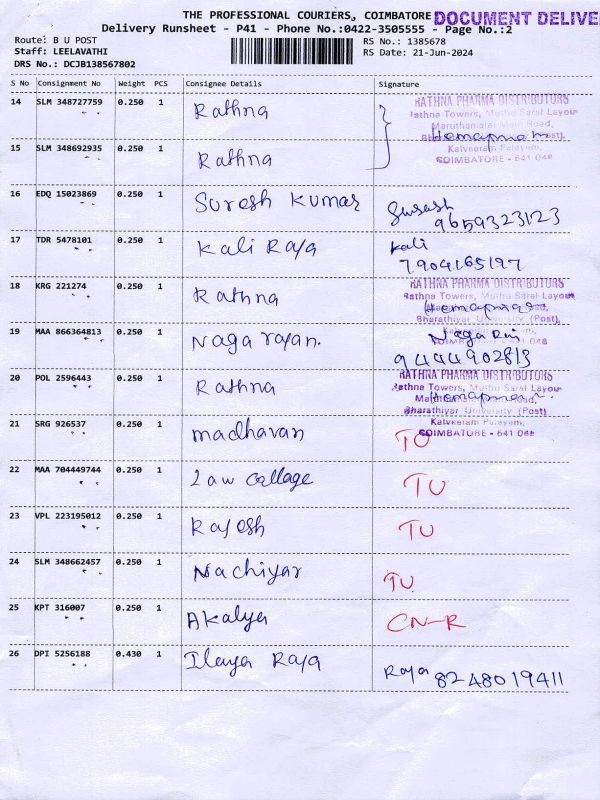 THE PROFESSIONAL COURIERS, COIMBATORE DOCUMENT DELIVE
Delivery Runsheet - P41 - Phone No.:0422-3505555 - Page No.:2
Route: B U POST
RS No.: 1385678
Staff: LEELAVATHI
RS Date: 21-Jun-2024
DRS No.: DCJB138567802
S No Consignment No Weight PCS Consignee Details Signature
14 SLM 348727759 0.250 1 Rathna
RATHNA PHARMA DISTRIBUTORS
Rathna Towers, Muthu Saral Layou
Maruthamalai Main Road,
Kalveeram Palayam,
COIMBATORE - 641 046
15 SLM 348692935 0.250 1 Rathna
16 EDQ 15023869 0.250 1 Suresh Kumar
9659323123
17 TDR 5478101 0.250 1 Kali Raja Kali
7904165197
18 KRG 221274 0.250 1 Rathna
RATHNA PHARMA DISTRIBUTORS
Rathna Towers, Muthu Saral Layou
Bharathiyar University (Post),
19 MAA 866364813 0.250 1 Nagarajan.
9444902813
20 POL 2596443 0.250 1 Rathna
RATHNA PHARMA DISTRIBUTORS
Rathna Towers, Muthu Saral Layou
Bharathiyar University (Post)
Kalveeram Palayam,
COIMBATORE - 641 046
21 SRG 926537 0.250 1 madhavan TU
22 MAA 704449744 0.250 1 Law collage TU
23 VPL 223195012 0.250 1 Rajesh TU
24 SLM 348662457 0.250 1 Nachiyar TU
25 KPT 316007 0.250 1 Akalya CN-R
26 DPI 5256188 0.430 1 Ilaya Raja Raja 8248019411